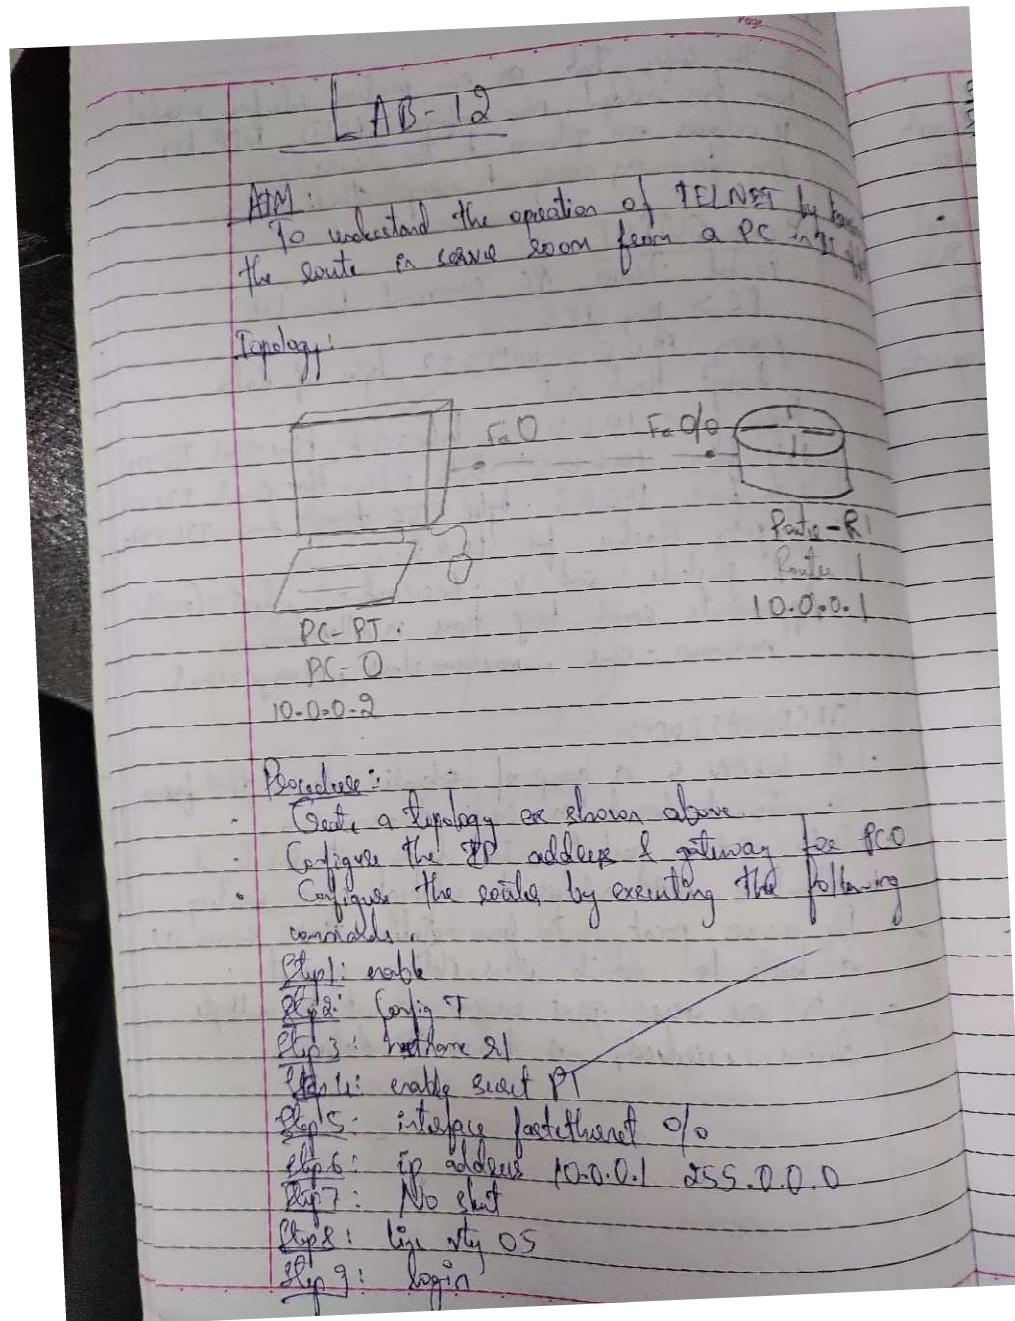 Page
LAB-12
AIM:
To understand the operation of TELNET by
the route in server room from a PC in IT
Topology:
Fa0 Fa0/0
Router-R1
Router 1
10.0.0.1
PC-PT.
PC-0
10.0.0.2
Procedure:
Create a topology as shown above
Configure the IP address & gateway for PC0
Configure the router by executing the following
commands.
Step1: enable
Step2: Config T
Step3: hostname R1
Step4: enable secret PT
Step5: interface fastethernet 0/0
Step6: ip address 10.0.0.1 255.0.0.0
Step7: No shut
Step8: line vty 05
Step9: login